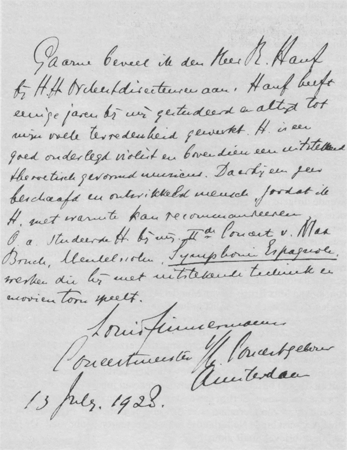 Gaarne beveel ik den Heer R. Hauf
bij H.H. Orkestdirecteuren aan. Hauf heeft
eenige jaren bij mij gestudeerd en altijd tot
mijn volle tevredenheid gewerkt. H. is een
goed onderlegd violist en bovendien een uitstekend
theoretisch gevormd musicus. Daarbij een zeer
beschaafd en ontwikkeld mensch zoodat ik
H. met warmte kan recommandeeren
O.a. studeerde H. bij mij IIde Concert v. Max
Bruch, Mendelssohn, Symphonie Espagnole
werken die hij met uitstekende techniek en
mooien toon speelt.
Louis Zimmermann
Concertmeester Concertgebouw
Amsterdam
13 July. 1928.